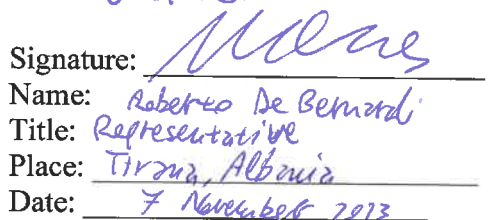 Signature:
Name: Roberto De Bernardi
Title: Representative
Place: Tirana, Albania
Date: 7 November 2013